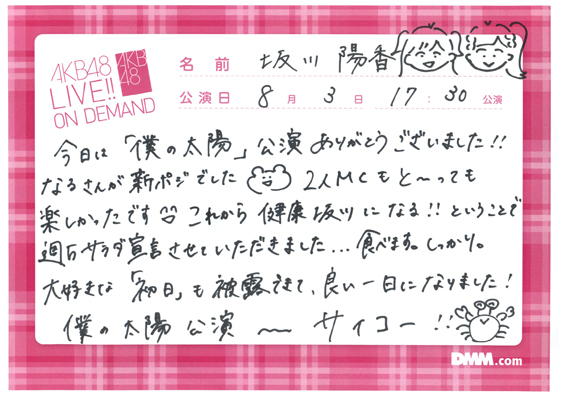 AKB48
LIVE!!
ON DEMAND
AKB
48
名前 坂川 陽香
公演日 8月 3日 17:30 公演
今日は「僕の太陽」公演ありがとうございました!!
なるさんが新ポジでした 2人MCもと〜っても
楽しかったです これから健康坂川になる!!ということで
週5サラダ宣言させていただきました...食べます。しっかり。
大好きな「初日」も披露できて、良い一日になりました!
僕の太陽公演 〜 サイコー!!
DMM.com